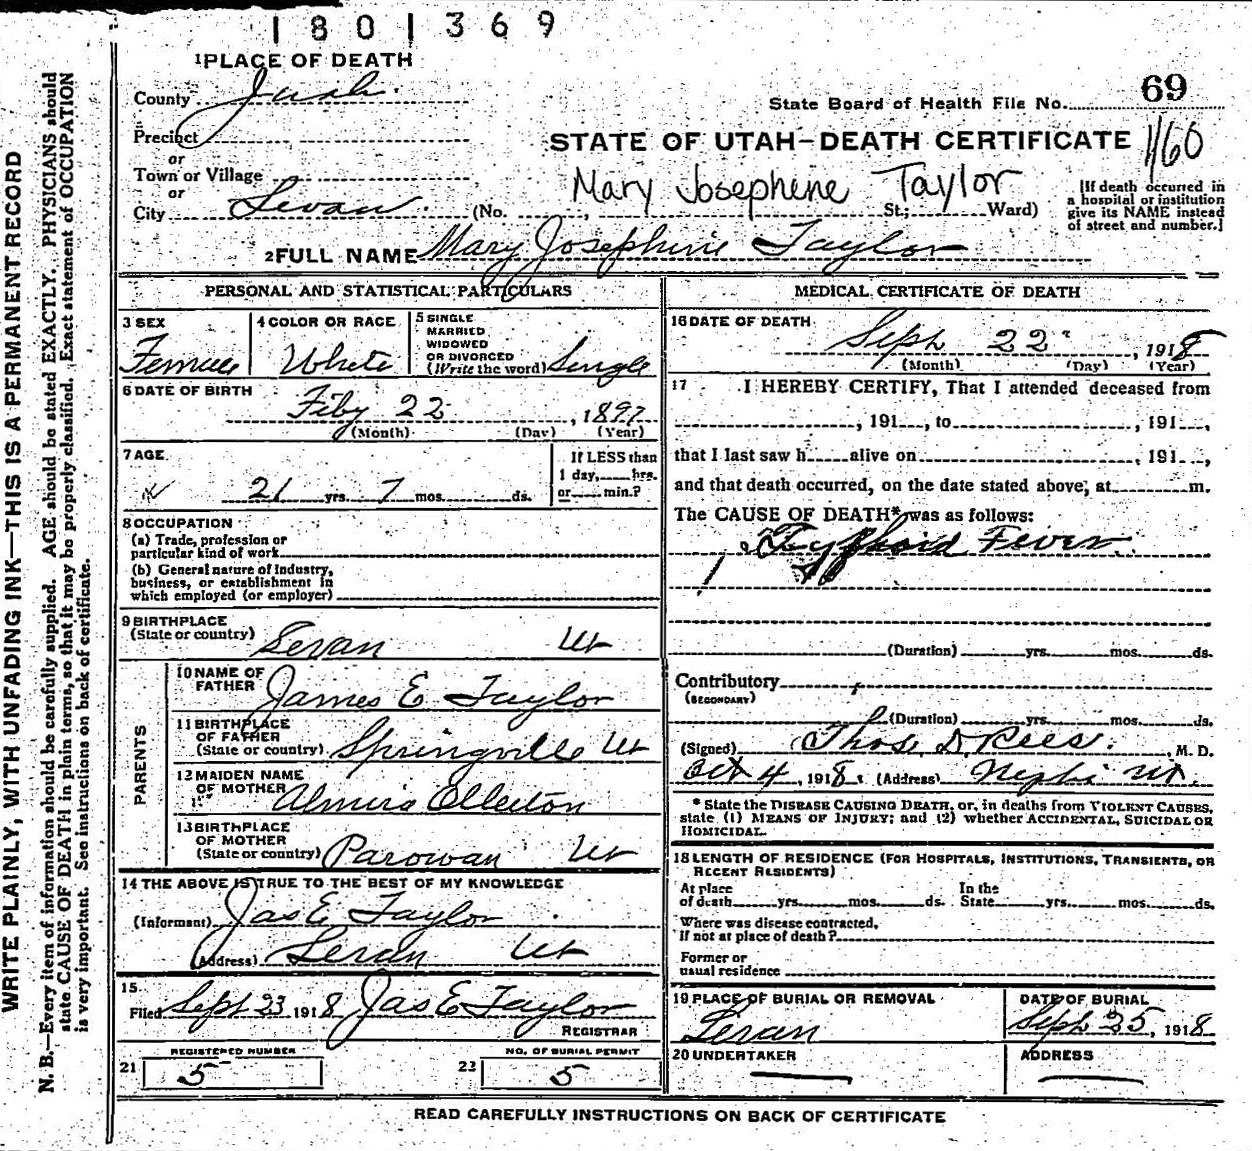 1801369
1 PLACE OF DEATH
County Juab.
State Board of Health File No. 69
Precinct
STATE OF UTAH-DEATH CERTIFICATE 1160
or
Town or Village
or
Mary Josephine Taylor
City Levan. (No. , St.; Ward)
[If death occurred in
a hospital or institution
give its NAME instead
of street and number.]
2 FULL NAME Mary Josephine Taylor
PERSONAL AND STATISTICAL PARTICULARS
3 SEX
Female
4 COLOR OR RACE
White
5 SINGLE
MARRIED
WIDOWED
OR DIVORCED
(Write the word) Single
6 DATE OF BIRTH
Feby 22 , 1897
(Month) (Day) (Year)
7 AGE
21 yrs. 7 mos. ds.
If LESS than
1 day, hrs.
or min.?
8 OCCUPATION
(a) Trade, profession or
particular kind of work
(b) General nature of Industry,
business, or establishment in
which employed (or employer)
9 BIRTHPLACE
(State or country) Levan Ut
PARENTS
10 NAME OF
FATHER James E Taylor
11 BIRTHPLACE
OF FATHER
(State or country) Springville Ut
12 MAIDEN NAME
OF MOTHER Almira Ollerton
13 BIRTHPLACE
OF MOTHER
(State or country) Parowan Ut
14 THE ABOVE IS TRUE TO THE BEST OF MY KNOWLEDGE
(Informant) Jas E Taylor
(Address) Levan Ut
15
Filed Sept 23 1918 Jas E Taylor
REGISTRAR
REGISTERED NUMBER
21 5
NO. OF BURIAL PERMIT
22 5
MEDICAL CERTIFICATE OF DEATH
16 DATE OF DEATH
Sept 22 , 1918
(Month) (Day) (Year)
17 I HEREBY CERTIFY, That I attended deceased from
, 191 , to , 191 ,
that I last saw h alive on , 191 ,
and that death occurred, on the date stated above, at m.
The CAUSE OF DEATH* was as follows:
Typhoid Fever.
1
(Duration) yrs. mos. ds.
Contributory
(SECONDARY)
(Duration) yrs. mos. ds.
(Signed) Thos. D. Rees. , M. D.
Oct 4 , 1918 (Address) Nephi Ut.
* State the DISEASE CAUSING DEATH, or, in deaths from VIOLENT CAUSES,
state (1) MEANS OF INJURY; and (2) whether ACCIDENTAL, SUICIDAL OR
HOMICIDAL.
18 LENGTH OF RESIDENCE (FOR HOSPITALS, INSTITUTIONS, TRANSIENTS, OR
RECENT RESIDENTS)
At place
of death yrs. mos. ds.
In the
State yrs. mos. ds.
Where was disease contracted,
if not at place of death?
Former or
usual residence
19 PLACE OF BURIAL OR REMOVAL
Levan
DATE OF BURIAL
Sept 25, 1918
20 UNDERTAKER
ADDRESS
READ CAREFULLY INSTRUCTIONS ON BACK OF CERTIFICATE
WRITE PLAINLY, WITH UNFADING INK—THIS IS A PERMANENT RECORD
N. B.—Every item of information should be carefully supplied. AGE should be stated EXACTLY. PHYSICIANS should
state CAUSE OF DEATH in plain terms, so that it may be properly classified. Exact statement of OCCUPATION
is very important. See instructions on back of certificate.